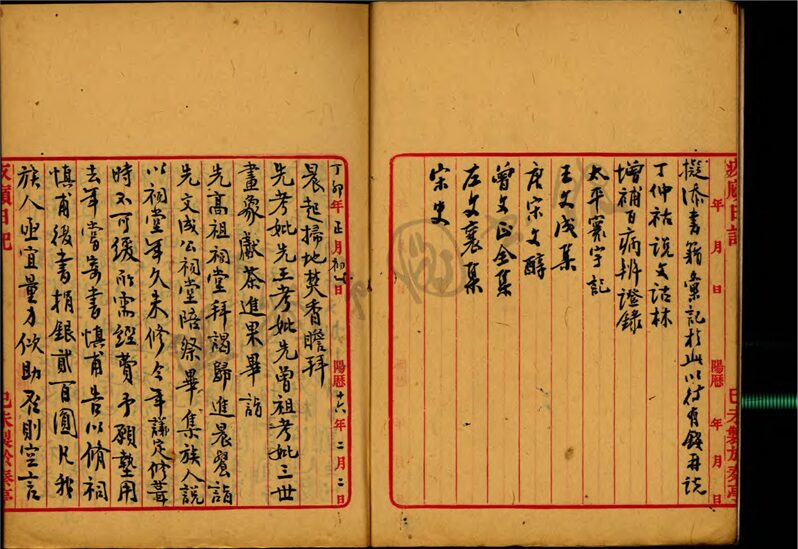 疚顧日記
年　月　日　陽曆　年　月　日
擬添書籍彙記於此以待有錢再說
丁仲祜說文詁林
增補百病辨證錄
太平寰宇記
王文成集
唐宋文醇
曾文正全集
左文襄集
宋史
己未製於春亭
丁卯年正月初一日　陽曆十六年二月二日
晨起掃地焚香瞻拜
先考妣先王考妣先曾祖考妣三世
畫象獻茶進果畢詣
先高祖祠堂拜謁歸進晨餐詣
先文成公祠堂陪祭畢集族人說
以祠堂年久未修今年議定修葺
時不可緩所需經費予願墊用
去年當寄書慎甫告以脩祠
慎甫後書捐銀貳百圓凡我
族人亟宜量力伙助否則空言
日記
己未製於春亭